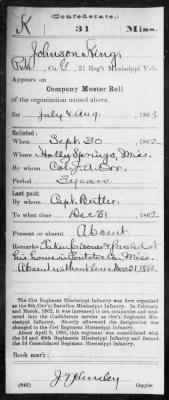 (Confederate.)
K 31 Miss.
Johnson King,
Pvt., Co. G, 31 Reg't Mississippi Vols.
Appears on
Company Muster Roll
of the organization named above,
for July & Aug., 1863.
Enlisted:
When Sept. 30, 1862.
Where Holly Springs, Miss.
By whom Col. J. A. Orr.
Period 3 years
Last paid:
By whom Capt. Butler.
To what time Dec 31, 1862.
Present or absent Absent.
Remarks: Taken prisoner & paroled at
his home in Pontotoc Co., Miss.
Absent without leave 31, 1862.
The 31st Regiment Mississippi Infantry was first organized
as the 6th (Orr's) Battalion Mississippi Infantry. In February
and March, 1862, it was increased to ten companies and mus-
tered into the Confederate service as Orr's Regiment Mis-
sissippi Infantry. Shortly afterward the designation was
changed to the 31st Regiment Mississippi Infantry.
About April 9, 1865, this regiment was consolidated with
the 3d and 40th Regiments Mississippi Infantry and formed
the 3d Consolidated Regiment Mississippi Infantry.
Book mark:
(642) Copyist.